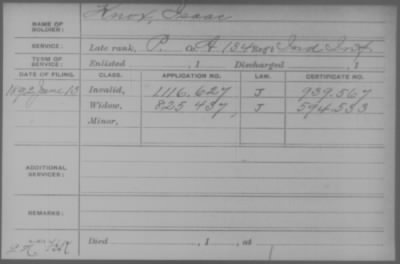 NAME OF SOLDIER: Knox, Isaac
SERVICE: Late rank, P. Co A 134 Reg't Ind Inf
TERM OF SERVICE: Enlisted , 1 Discharged , 1
DATE OF FILING. CLASS. APPLICATION NO. LAW. CERTIFICATE NO.
1892 June 13 Invalid, 1116.627 J 939.567
Widow, 825437 J 594.533
Minor,
ADDITIONAL SERVICES:
REMARKS:
Died , 1 , at